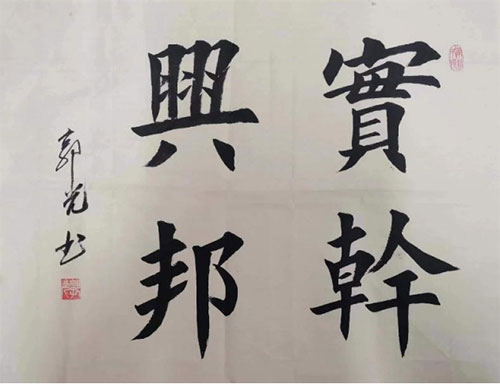 實幹
興邦
郭光书